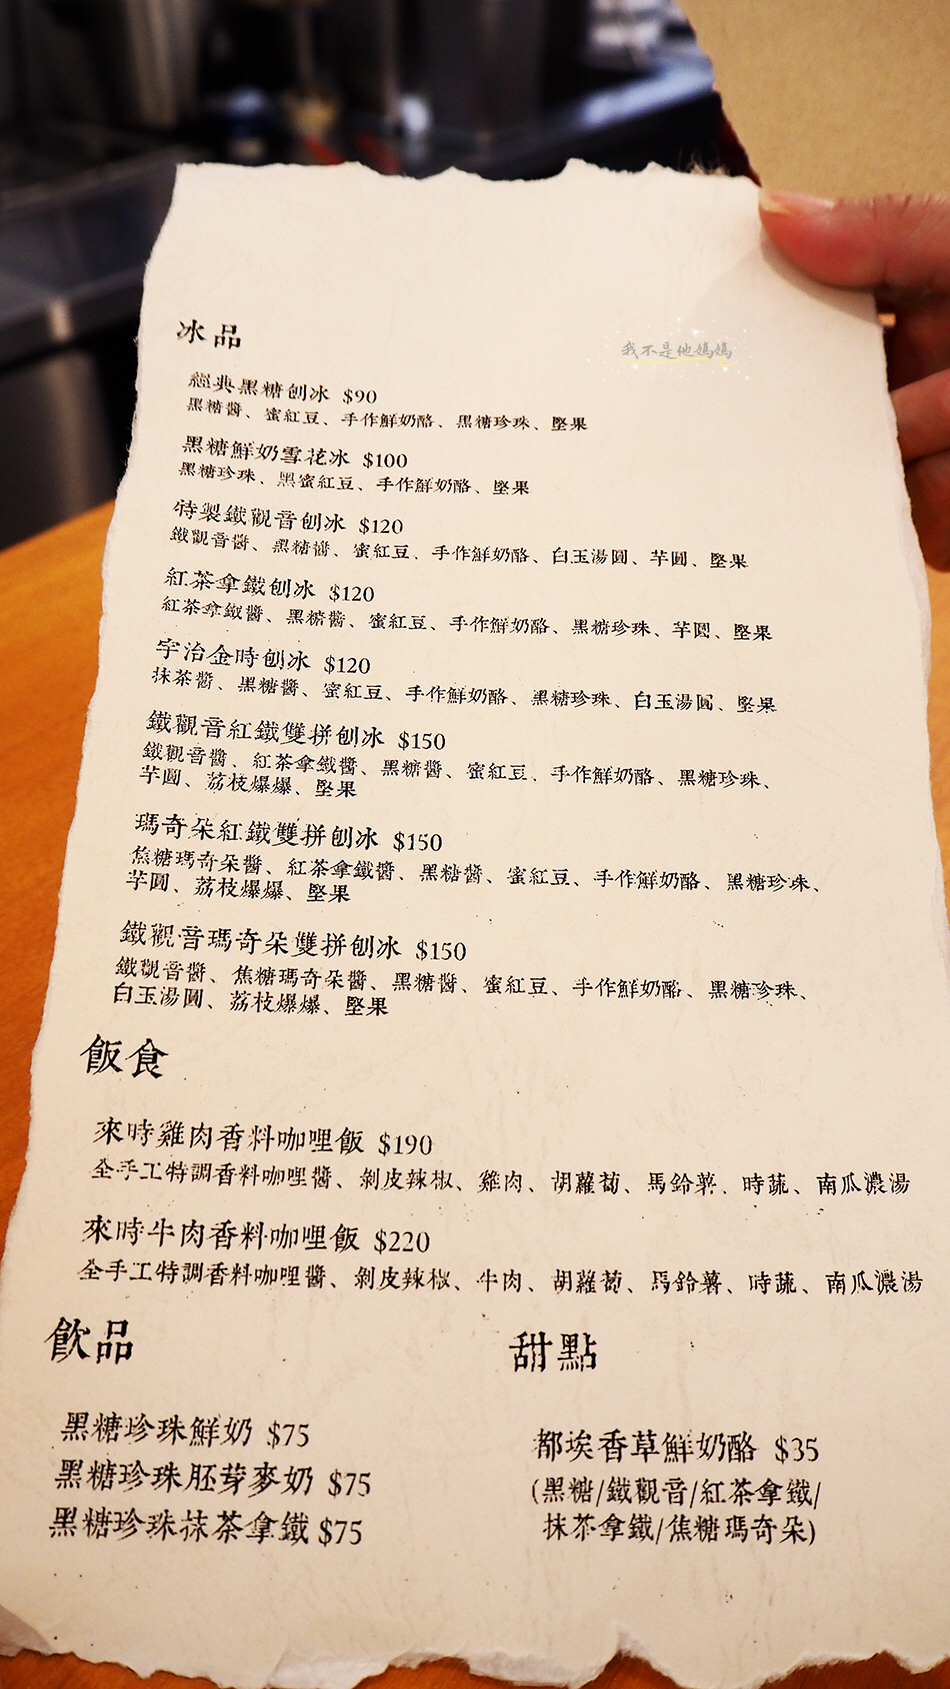 冰品
我不是他媽媽
經典黑糖刨冰 $90
黑糖醬、蜜紅豆、手作鮮奶酪、黑糖珍珠、堅果
黑糖鮮奶雪花冰 $100
黑糖珍珠、黑蜜紅豆、手作鮮奶酪、堅果
特製鐵觀音刨冰 $120
鐵觀音醬、黑糖醬、蜜紅豆、手作鮮奶酪、白玉湯圓、芋圓、堅果
紅茶拿鐵刨冰 $120
紅茶拿鐵醬、黑糖醬、蜜紅豆、手作鮮奶酪、黑糖珍珠、芋圓、堅果
宇治金時刨冰 $120
抹茶醬、黑糖醬、蜜紅豆、手作鮮奶酪、黑糖珍珠、白玉湯圓、堅果
鐵觀音紅鐵雙拼刨冰 $150
鐵觀音醬、紅茶拿鐵醬、黑糖醬、蜜紅豆、手作鮮奶酪、黑糖珍珠、
芋圓、荔枝爆爆、堅果
瑪奇朵紅鐵雙拼刨冰 $150
焦糖瑪奇朵醬、紅茶拿鐵醬、黑糖醬、蜜紅豆、手作鮮奶酪、黑糖珍珠、
芋圓、荔枝爆爆、堅果
鐵觀音瑪奇朵雙拼刨冰 $150
鐵觀音醬、焦糖瑪奇朵醬、黑糖醬、蜜紅豆、手作鮮奶酪、黑糖珍珠、
白玉湯圓、荔枝爆爆、堅果
飯食
來時雞肉香料咖哩飯 $190
全手工特調香料咖哩醬、剝皮辣椒、雞肉、胡蘿蔔、馬鈴薯、時蔬、南瓜濃湯
來時牛肉香料咖哩飯 $220
全手工特調香料咖哩醬、剝皮辣椒、牛肉、胡蘿蔔、馬鈴薯、時蔬、南瓜濃湯
飲品
黑糖珍珠鮮奶 $75
黑糖珍珠胚芽麥奶 $75
黑糖珍珠抹茶拿鐵 $75
甜點
都埃香草鮮奶酪 $35
(黑糖/鐵觀音/紅茶拿鐵/
抹茶拿鐵/焦糖瑪奇朵)